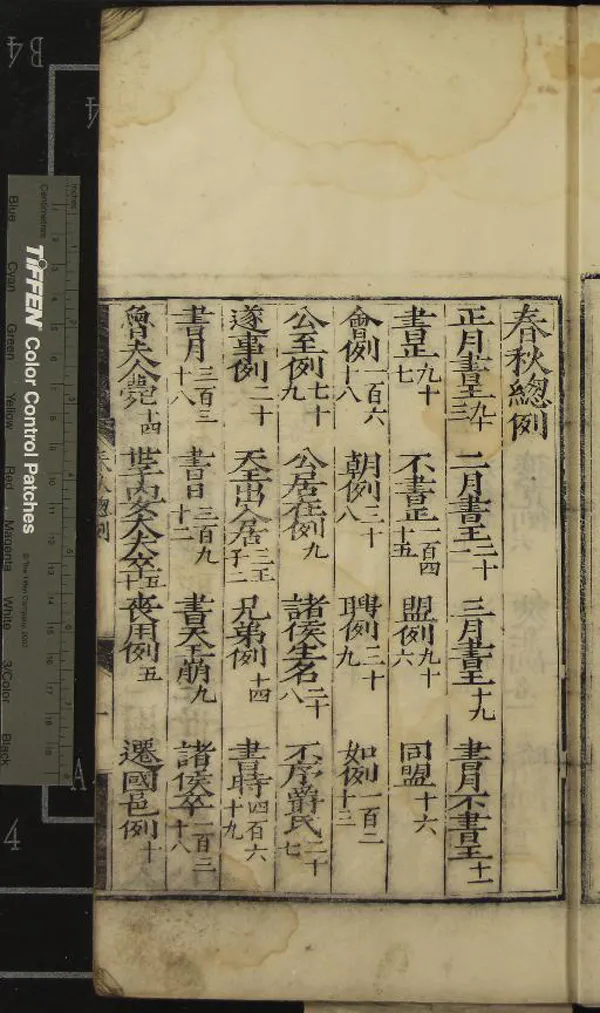 春秋總例
正月書王九十三 二月書王二十一 三月書王十九 書月不書王十一
書正九十七 不書正一百四十五 盟例九十六 同盟十六
會例一百六十八 朝例三十八 聘例三十九 如例一百二十三
公至例七十九 公居在例九 諸侯生名二十八 不序爵氏二十七
遂事例二十 天王出入居三王子二 兄弟例十四 書時四百六十九
書月三百三十八 書日三百九十二 書天王崩九 諸侯卒一百三十八
魯夫人薨十四 大夫卒 喪用例五 遷國邑例十
春秋總例
TIFFEN Color Control Patches
© The Tiffen Company, 2007
Centimetres
Inches
Blue Cyan Green Yellow Red Magenta White 3/Color Black
B4
4
A
4